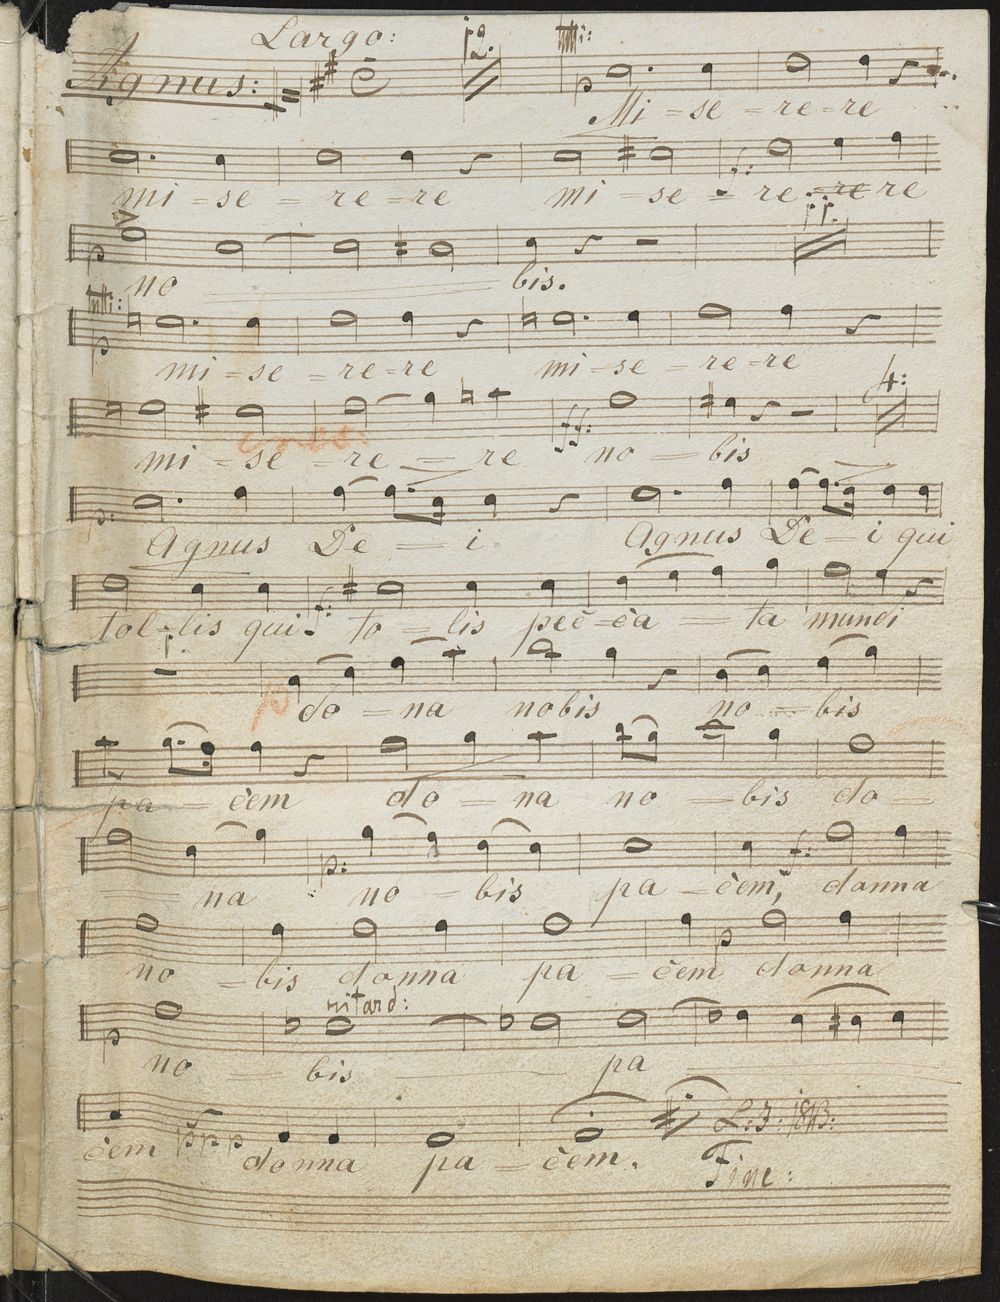 Largo: 12.
Agnus: Tutti: p
Mi - se - re - re
f:
mi - se - re - re mi - se - re - re re
p pp.
no bis.
Tutti:
p
mi - se - re - re mi - se - re - re
4:
cresc: ff:
mi - se - re - re no - bis
p:
Agnus De - i Agnus De - i qui
f:
tol - lis qui to - lis pec - ca - ta mundi
p
do - na nobis no - bis
pa - cem do - na no - bis do -
p: f:
na no - bis pa - cem, donna
p
no - bis donna pa - cem donna
ritard:
p
no - bis pa
ppp L: J: 1843:
cem donna pa - cem. Fine: